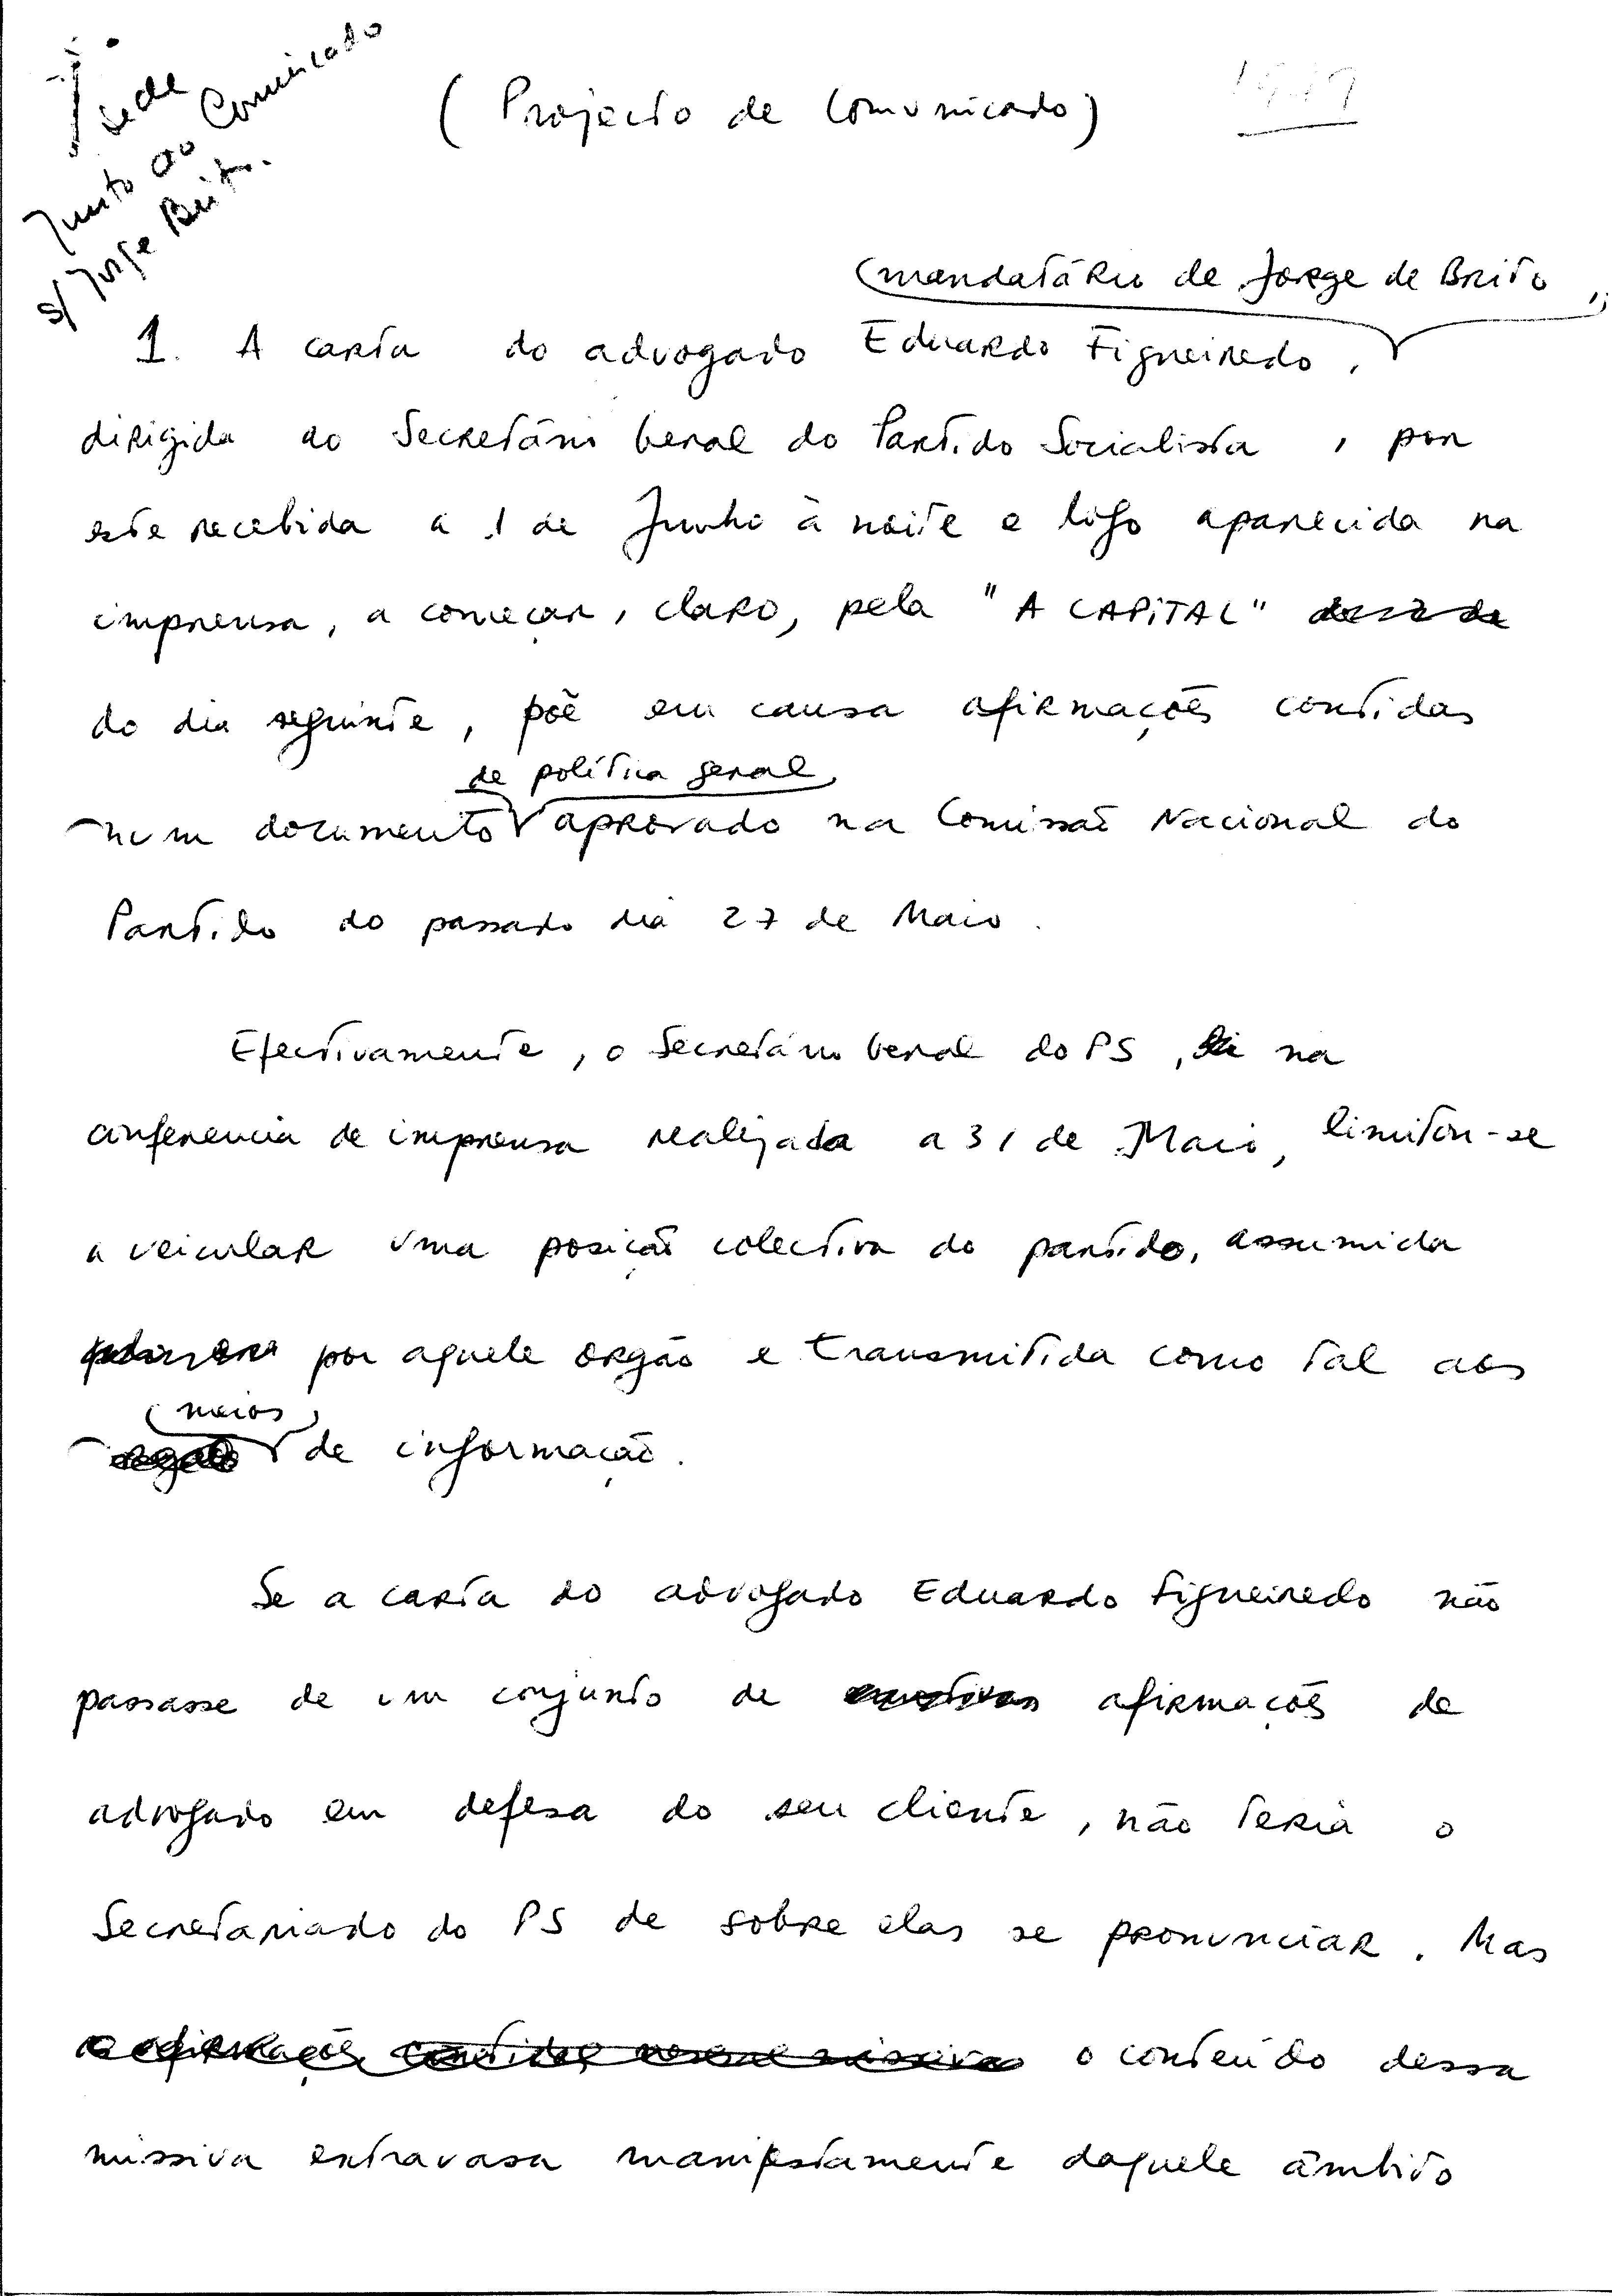 sede
Junto ao Comunicado
s/ Jorge Brito.
(Projecto de Comunicado)
(mandatário de Jorge de Brito,
1. A carta do advogado Eduardo Figueiredo,
dirigida ao Secretário Geral do Partido Socialista, por
este recebida a 1 de Junho à noite e logo aparecida na
imprensa, a começar, claro, pela "A CAPITAL"
do dia seguinte, põe em causa afirmações contidas
de política geral,
num documento aprovado na Comissão Nacional do
Partido do passado dia 27 de Maio.
Efectivamente, o Secretário Geral do PS, na
conferencia de imprensa realizada a 31 de Maio, limitou-se
a veicular uma posição colectiva do partido, assumida
por aquele orgão e transmitida como tal aos
(meios)
de informação.
Se a carta do advogado Eduardo Figueiredo não
passasse de um conjunto de afirmações de
advogado em defesa do seu cliente, não teria o
Secretariado do PS de sobre elas se pronunciar. Mas
as afirmações contidas nessa missiva o conteúdo dessa
missiva extravasa manifestamente daquele âmbito